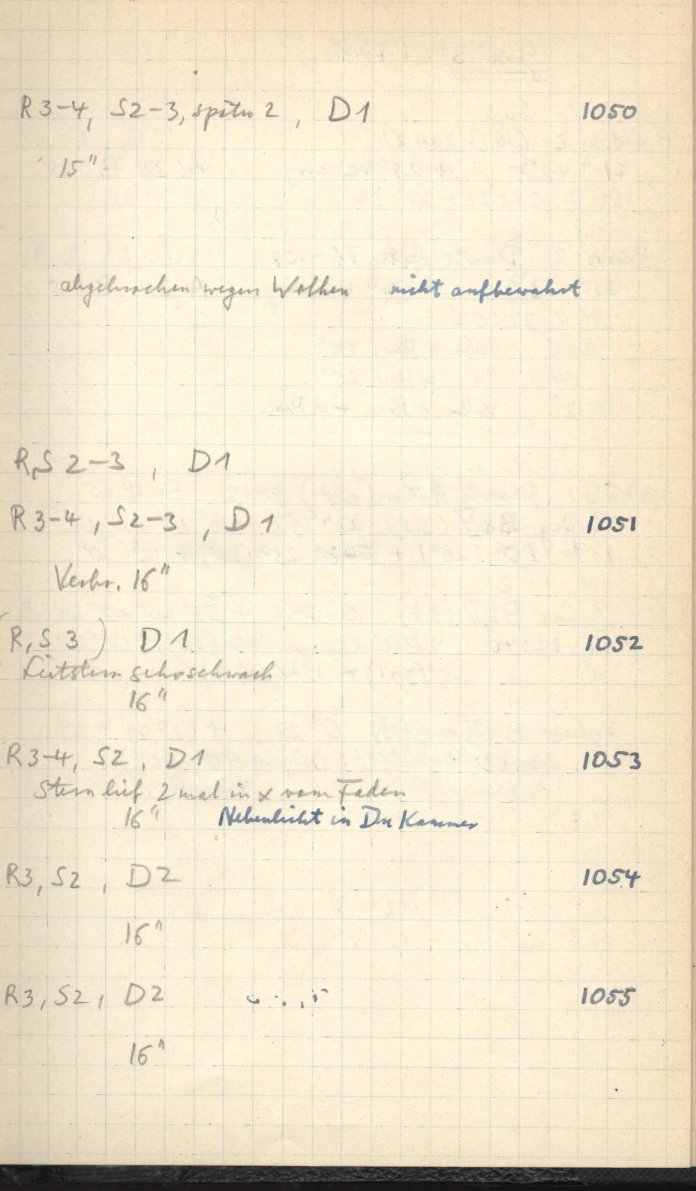 R 3-4, S2-3, später 2, D1 1050
15"
abgebrochen wegen Wolken nicht aufbewahrt
R,S 2-3, D1
R3-4, S2-3, D1 1051
Verbr. 16"
(R,S 3) D1 1052
Leitstern sehr schwach
16"
R3-4, S2, D1 1053
Stern lief 2 mal in x vom Faden
16" Nebenlicht in Du Kammer
R3, S2, D2 1054
16"
R3, S2, D2 1055
16"